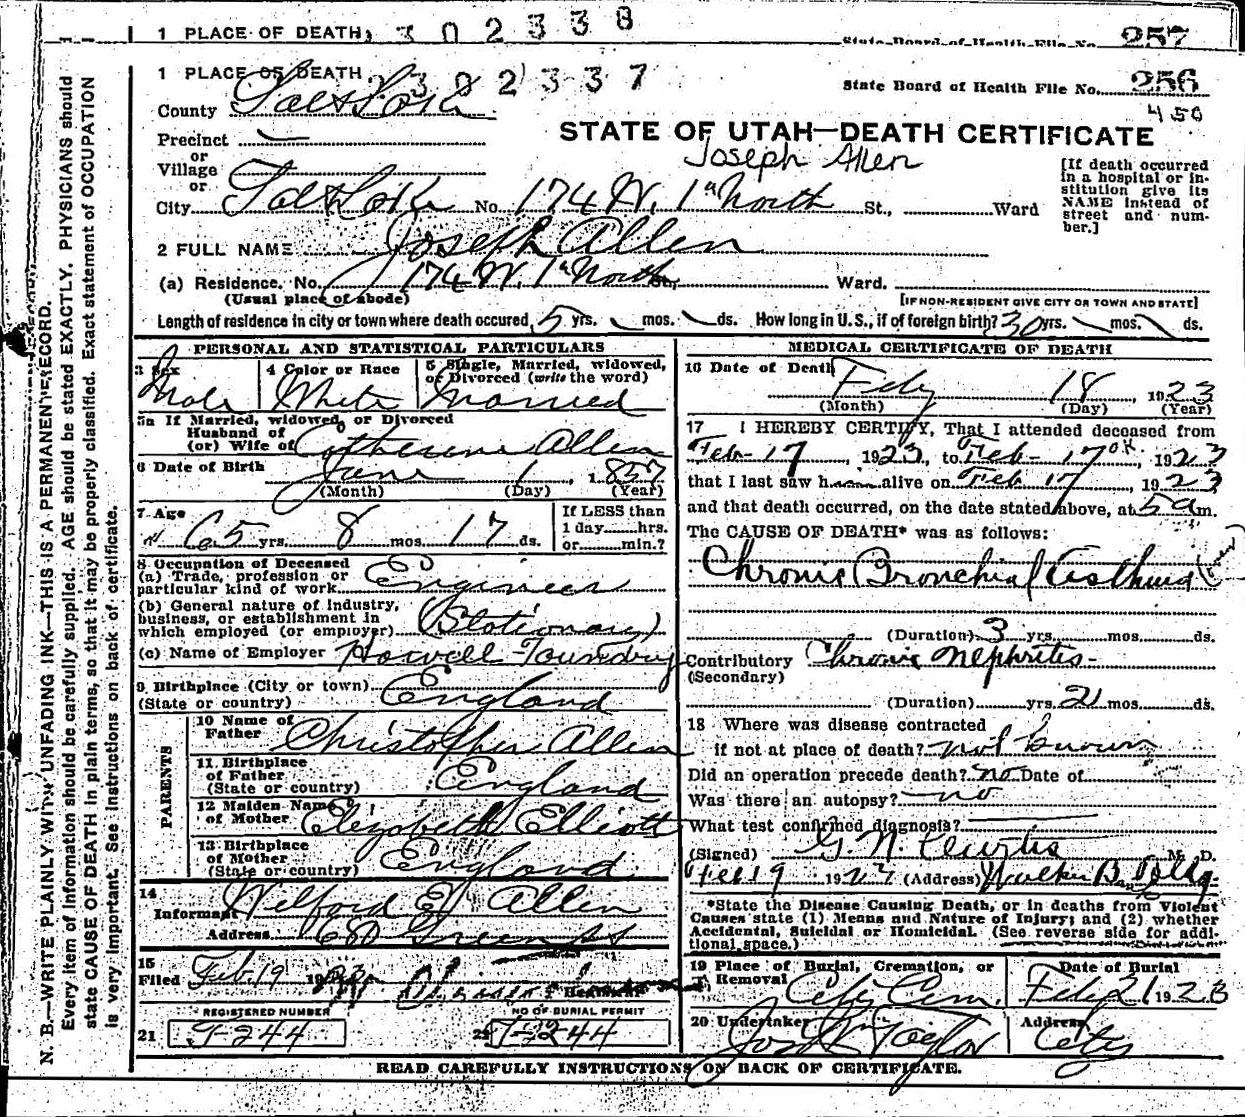 1 PLACE OF DEATH, 3 0 2 3 3 8
State Board of Health File No. 257
1 PLACE OF DEATH 3 0 2 3 3 7
State Board of Health File No. 256
450
County Salt Lake
Precinct
or
Village
or
STATE OF UTAH—DEATH CERTIFICATE
Joseph Allen
[If death occurred
in a hospital or in-
stitution give its
NAME instead of
street and num-
ber.]
City Salt Lake No. 174 W. 1st North St., Ward
2 FULL NAME Joseph Allen
(a) Residence. No. 174 W. 1st North St., Ward.
(Usual place of abode) [IF NON-RESIDENT GIVE CITY OR TOWN AND STATE]
Length of residence in city or town where death occured 5 yrs. mos. ds. How long in U.S., if of foreign birth? 30 yrs. mos. ds.
PERSONAL AND STATISTICAL PARTICULARS
3 Sex
Male
4 Color or Race
White
5 Single, Married, widowed,
or Divorced (write the word)
Married
5a If Married, widowed, or Divorced
Husband of
(or) Wife of Catherine Allen
6 Date of Birth June 1, 1857
(Month) (Day) (Year)
7 Age
65 yrs. 8 mos. 17 ds.
If LESS than
1 day hrs.
or min.?
8 Occupation of Deceased
(a) Trade, profession or
particular kind of work Engineer
(b) General nature of industry,
business, or establishment in
which employed (or employer) (Stationary)
(c) Name of Employer Howell Foundry
9 Birthplace (City or town)
(State or country) England
PARENTS
10 Name of
Father Christopher Allen
11 Birthplace
of Father
(State or country) England
12 Maiden Name
of Mother Elizabeth Elliott
13 Birthplace
of Mother
(State or country) England
14
Informant Wilford E. Allen
Address
15
Filed Feb. 19 1923
REGISTERED NUMBER
21 T-244
NO OF BURIAL PERMIT
22 T-244
MEDICAL CERTIFICATE OF DEATH
16 Date of Death
Feby 18, 1923
(Month) (Day) (Year)
17 I HEREBY CERTIFY, That I attended deceased from
Feb-17, 1923, to Feb-17th, 1923
that I last saw h alive on Feb 17, 1923
and that death occurred, on the date stated above, at 5 a m.
The CAUSE OF DEATH* was as follows:
Chronic Bronchial Asthma
(Duration) 3 yrs. mos. ds.
Contributory Chronic Nephritis-
(Secondary)
(Duration) yrs. mos. ds.
18 Where was disease contracted
if not at place of death? not known
Did an operation precede death? no Date of
Was there an autopsy? no
What test confirmed diagnosis?
(Signed) G. N. Curtis M. D.
Feb 19 1923 (Address) Walker B. Bldg.
*State the Disease Causing Death, or in deaths from Violent
Causes state (1) Means and Nature of Injury; and (2) whether
Accidental, Suicidal or Homicidal. (See reverse side for addi-
tional space.)
19 Place of Burial, Cremation, or
Removal City Cem.
Date of Burial
Feby 21 1923
20 Undertaker Jos Wm Taylor
Address City
READ CAREFULLY INSTRUCTIONS ON BACK OF CERTIFICATE.
N. B.—WRITE PLAINLY WITH UNFADING INK—THIS IS A PERMANENT RECORD.
Every item of information should be carefully supplied. AGE should be stated EXACTLY. PHYSICIANS should
state CAUSE OF DEATH in plain terms, so that it may be properly classified. Exact statement of OCCUPATION
is very important. See instructions on back of certificate.